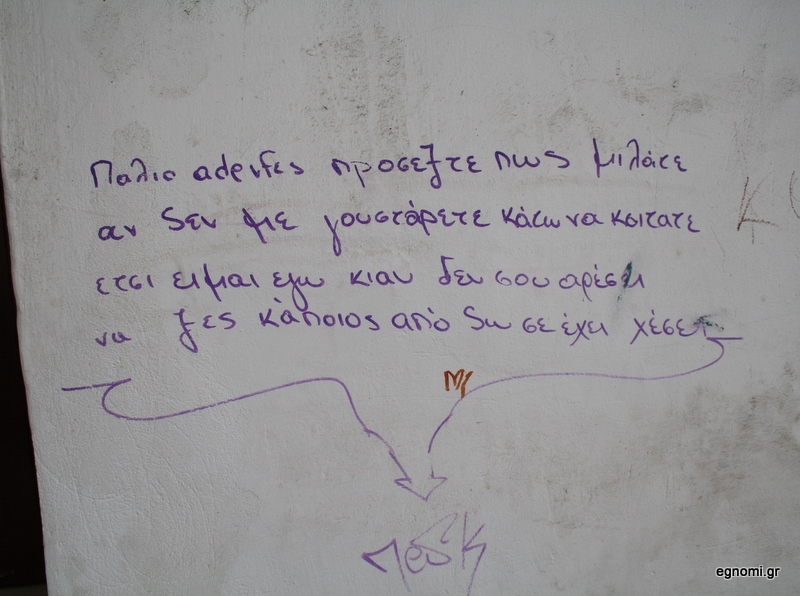 Παλιο adερfες προσεξτε πως μιλάτε
αν δεν με γουστάρετε κάτω να κοιτατε
ετσι ειμαι εγω κιαν δεν σου αρέσει
να ξες κάποιος από δω σε έχει χέσει
egnomi.gr